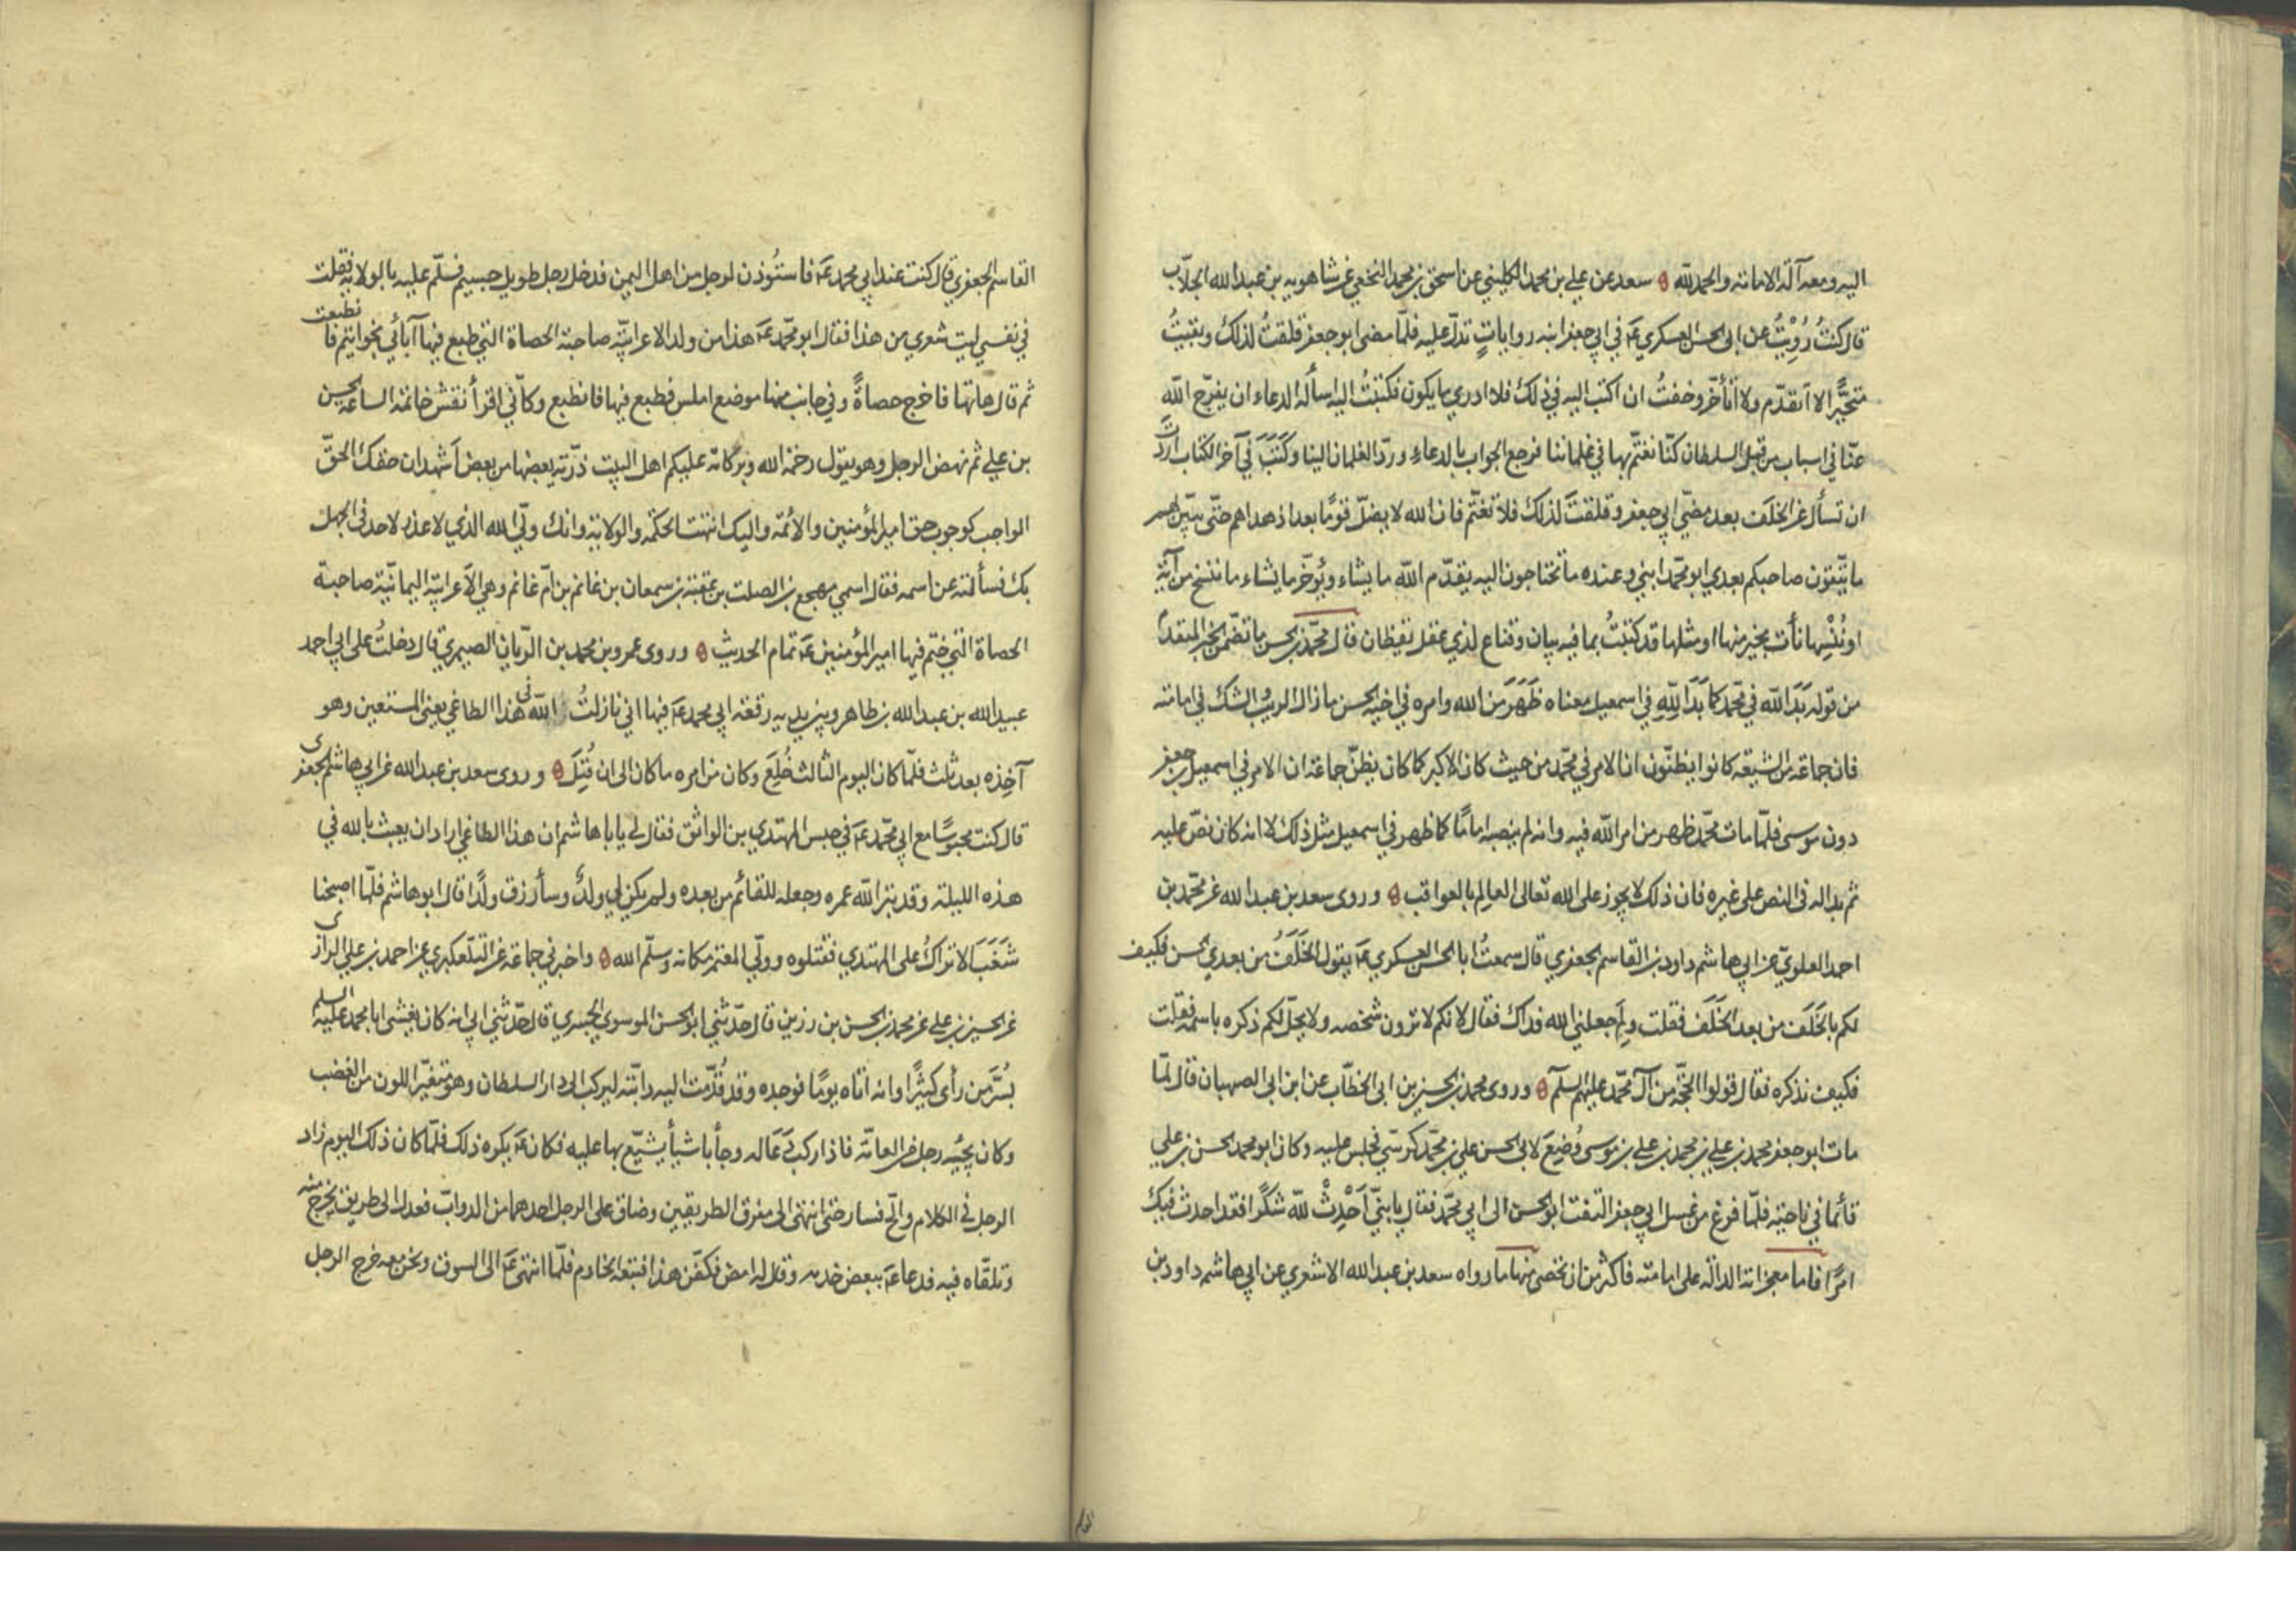 اليه ومعه آلة الامامة والحمد لله ه سعد عن علي بن محمد الكليني عن اسحق بن محمد النخعي عن شاهويه بن عبد الله الجلاب
قال كنتُ رُوِّيتُ عن ابى الحسن العسكري عَم في ابي جعفر ابنه رواياتٍ تدلّ عليه فلمّا مضى ابو جعفر قلقتُ لذلك وبقيتُ
متحيَّرا لا اتقدّم ولا اتأخّر وخفتُ ان اكتب اليه في ذلك فلا ادري ما يكون فكتبتُ اليه اسأله الدعاء ان يفرّج الله
عنّا في اسباب من قبل السلطان كنّا نغتمّ بها في غلماننا فرجع الجواب بالدعاء وردّ الغلمان الينا وكَتَبَ في آخر الكتاب اردتَ
ان تسأل عن الخلَف بعد مضيّ ابي جعفر وقلقتَ لذلك فلا تغتمّ فانّ الله لا يضلّ قومًا بعد اذ هداهم حتّى يبيّن لهم
ما يتّقون صاحبكم بعدي ابو محمّد ابني وعنده ما تحتاجون اليه يقدّم الله ما يشاء ويُوخّر ما يشاء ما ننسخ من آية
او نُنْسِها نأت بخير منها او مثلها قد كتبتُ بما فيه بيان وقناع لذي عقل يقظان قال محمّد بن الحسن ما تضمّن الخبر المتقدّم
من قوله بَدَا لله في محمّد كما بَدَا لِلّهِ في اسمعيل معناه ظَهَرَ مَن الله وامره في اخيه الحسن ما زال الريبُ والشك في امامته
فان جماعة من الشيعة كانوا يظنّون ان الامر في محمّد من حيث كان الاكبر كما كان يظنّ جماعة ان الامر في اسمعيل بن جعفر
دون موسى فلمّا مات محمّد ظهر من امر الله فيه وانه لم ينصبه امامًا كما ظهر في اسمعيل مثل ذلك لا انه كان نصّ عليه
ثم بدا له في النص على غيره فان ذلك لا يجوز على الله تعالى العالم بالعواقب ه وروى سعد بن عبد الله عن محمّد بن
احمد العلويّ عن ابي هاشم داود بن القاسم الجعفري قال سمعتُ ابا الحسن العسكري عَم يقول الخَلَفُ من بعدي الحسن فكيف
لكم بالخَلَف من بعد الخَلَف فقلت ولِمَ جعلني الله فداك فقال لانكم لا ترون شخصه ولا يحلّ لكم ذكره باسمه فقلت
فكيف نذكره فقال قولوا الحجّة من آل محمّد عليهم السلم ه وروى محمد بن الحسين بن ابى الخطّاب عن ابن ابى الصهبان قال لمّا
مات ابو جعفر محمد بن علي بن محمد بن علي بن موسى وُضِعَ لابى الحسن علي بن محمّد كرسيّ فجلس عليه وكان ابو محمد الحسن بن علي
قائما في ناحية فلمّا فرغ من غسل ابي جعفر التفت ابو الحسن الى ابي محمّد فقال يا بنيّ اَحْدِثْ لله شكرًا فقد احدث فيك
امرًا فاما معجزاته الدالّة على امامته فاكثر من ان تحصى منها ما رواه سعد بن عبد الله الاشعري عن ابي هاشم داود بن
القاسم
القاسم الجعفري قال كنت عند ابي محمد عَم فاستُوذن لرجل من اهل اليمن فدخل رجل طويل جسيم فسلّم عليه بالولاية فقلت
في نفسي ليت شعري من هذا فقال ابو محمّد عَم هذا من ولد الاعرابيّة صاحبة الحصاة التي طبع فيها آبائي بخواتيمهم فانطبعت
ثم قال هاتها فاخرج حصاةً وفي جانب منها موضع املس فطبع فيها فانطبع وكأنّي اقرأ نقش خاتمه الساعة الحسن
بن علي ثم نهض الرجل وهو يقول رحمة الله وبركاته عليكم اهل البيت ذرّية بعضها من بعض اَشهد ان حقك الحقّ
الواجب كوجوب حق امير المؤمنين والائمّة واليك انتهت الحكمة والولاية وانك وليّ الله الذي لا عذر لاحد في الجهل
بك فسألته عن اسمه فقال اسمي مهجع بن الصلت بن عقبة بن سمعان بن غانم بن امّ غانم وهي الاعرابيّة اليمانيّة صاحبة
الحصاة التي ختم فيها امير المؤمنين عَم تمام الحديث ه وروى عمرو بن محمد بن الريّان الصيمري قال دخلتُ على ابي احمد
عبيد الله بن عبد الله بن طاهر وبين يديه رقعة ابي محمد عَم فيها اني نازلتُ الله في هذا الطاغي يعني المستعين وهو
آخِذه بعد ثلث فلمّا كان اليوم الثالث خُلِعَ وكان من امره ما كان الى ان قُتِلَ ه وروى سعد بن عبد الله عن ابي هاشم الجعفرى
قال كنت محبوسًا مع ابي محمّد عَم في حبس المهتدي بن الواثق فقال لي يا با هاشم ان هذا الطاغي اراد ان يعبث بالله في
هذه الليلة وقد بتر الله عمره وجعله للقائم من بعده ولم يكن لي ولدٌ وسأرزق ولدًا قال ابو هاشم فلمّا اصبحنا
شَغَبَ الاتراكُ على المهتدي فقتلوه وولّي المعتمد مكانه وسلّم الله ه واخبرني جماعة عن التلّعكبري عن احمد بن علي الرازى
عن الحسين بن علي عن محمد بن الحسن بن رزين قال حدّثني ابو الحسن الموسوي الخيبري قال حدّثني ابي انه كان يغشى ابا محمد عليه السلم
بسُرَّ مَن رأى كثيرًا وانه اتاه يومًا فوجده وقد قُدّمت اليه دابّته ليركب الى دار السلطان وهو متغيّر اللون من الغضب
وكان يجيُه رجل من العامّة فاذا ركب دَعَا له وجأ باشيأ يشيّع بها عليه فكان عَم يكره ذلك فلمّا كان ذلك اليوم زاد
الرجل في الكلام والحّ فسار حتى انتهى الى مفرق الطريقين وضاق على الرجل احدهما من الدوابّ فعدل الى طريق يخرج منه
وتلقّاه فيه فدعا عَم ببعض خدمه وقال له امض فكفّن هذا فتبعه الخادم فلمّا انتهى عَم الى السوق ونحن معه خرج الرجل